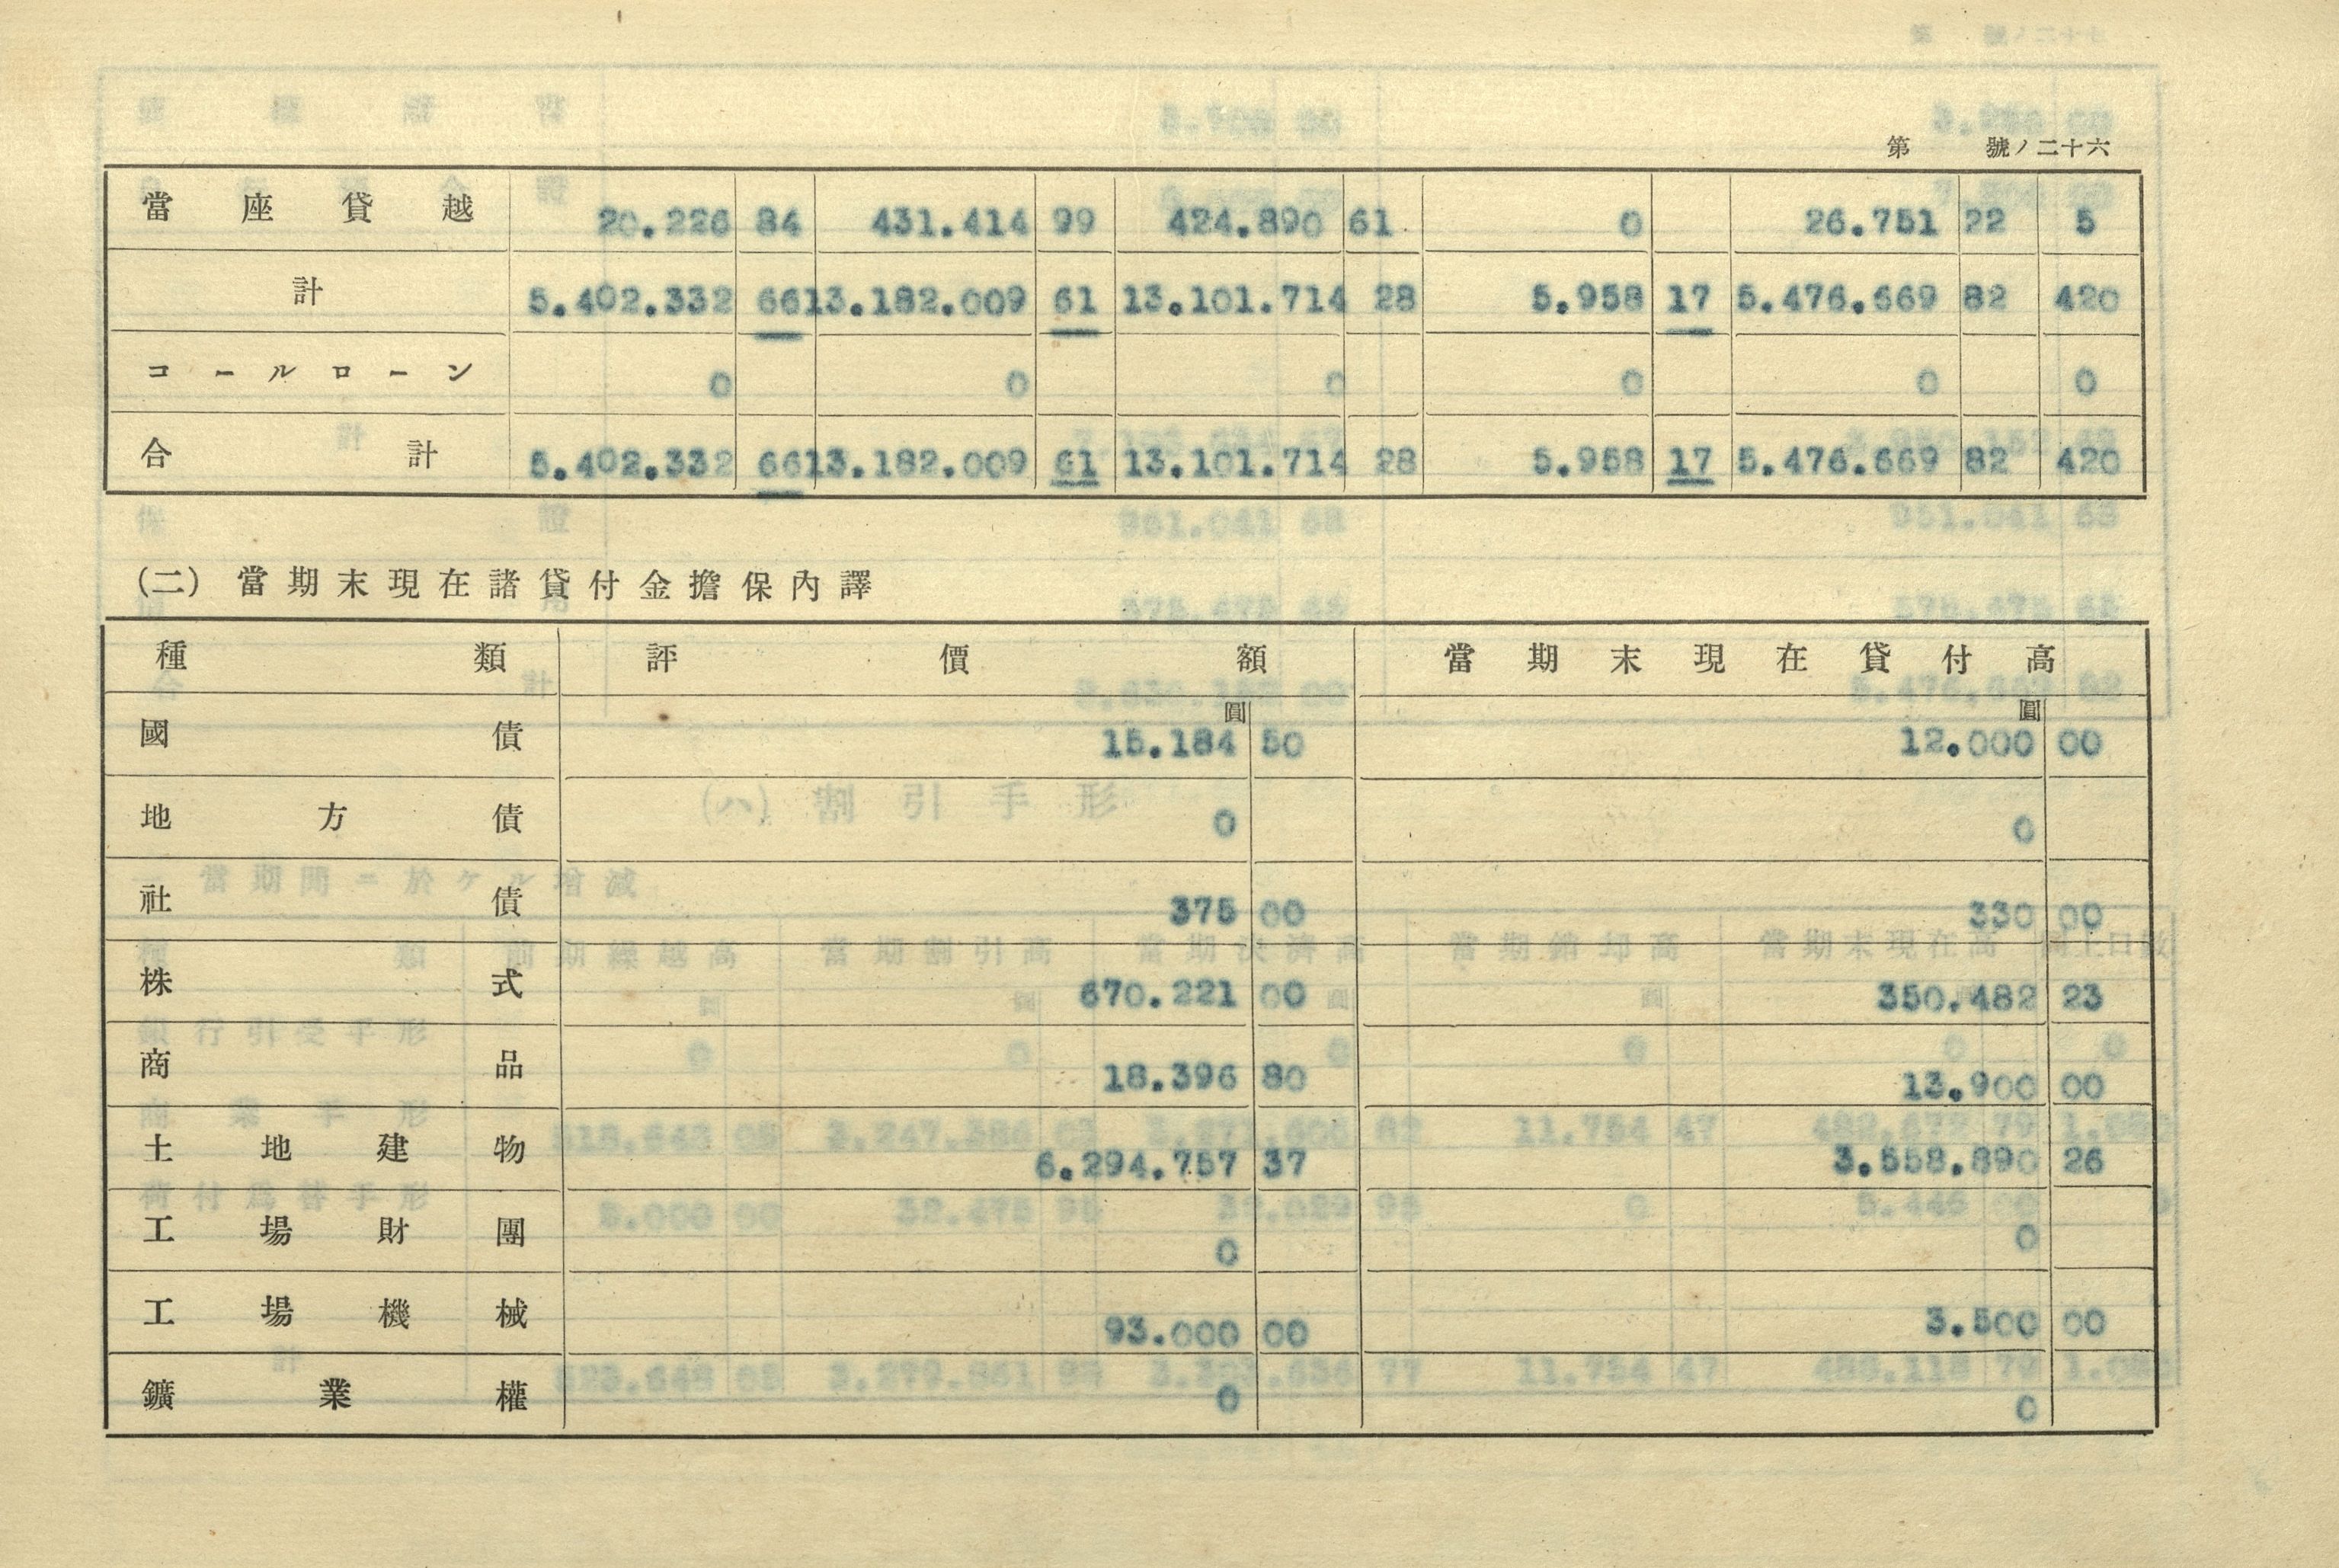 第 號ノ二十六
當座貸越 20.226 84 431.414 99 424.890 61 0 26.751 22 5
計 5.402.332 66 13.182.009 61 13.101.714 28 5.958 17 5.476.669 82 420
コールローン 0 0 0 0 0 0
合計 5.402.332 66 13.182.009 61 13.101.714 28 5.958 17 5.476.669 82 420
(二) 當期末現在諸貸付金擔保內譯
種類 評價額 當期末現在貸付高
圓 圓
國債 15.184 50 12.000 00
地方債 0 0
社債 375 00 330 00
株式 670.221 00 350.482 23
商品 18.396 80 13.900 00
土地建物 6.294.757 37 3.558.890 26
工場財團 0 0
工場機械 93.000 00 3.500 00
鑛業權 0 0